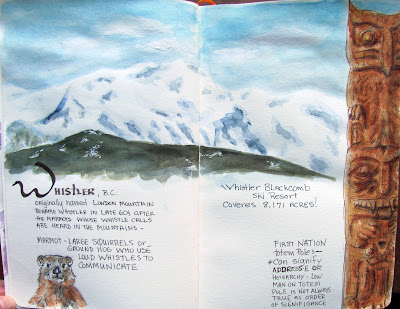 Whistler, B.C.
originally named London Mountain
renamed Whistler in late 60s after
the marmots whose whistle calls
are heard in the mountains -
Marmot - large squirrels or
ground hog who use
loud whistles to
communicate
Whistler Blackcomb
Ski Resort
covers 8,171 acres!
First Nation
totem poles -
*Can signify
or
heirarchy - low
man on totem
pole is not always
true as order
of significance